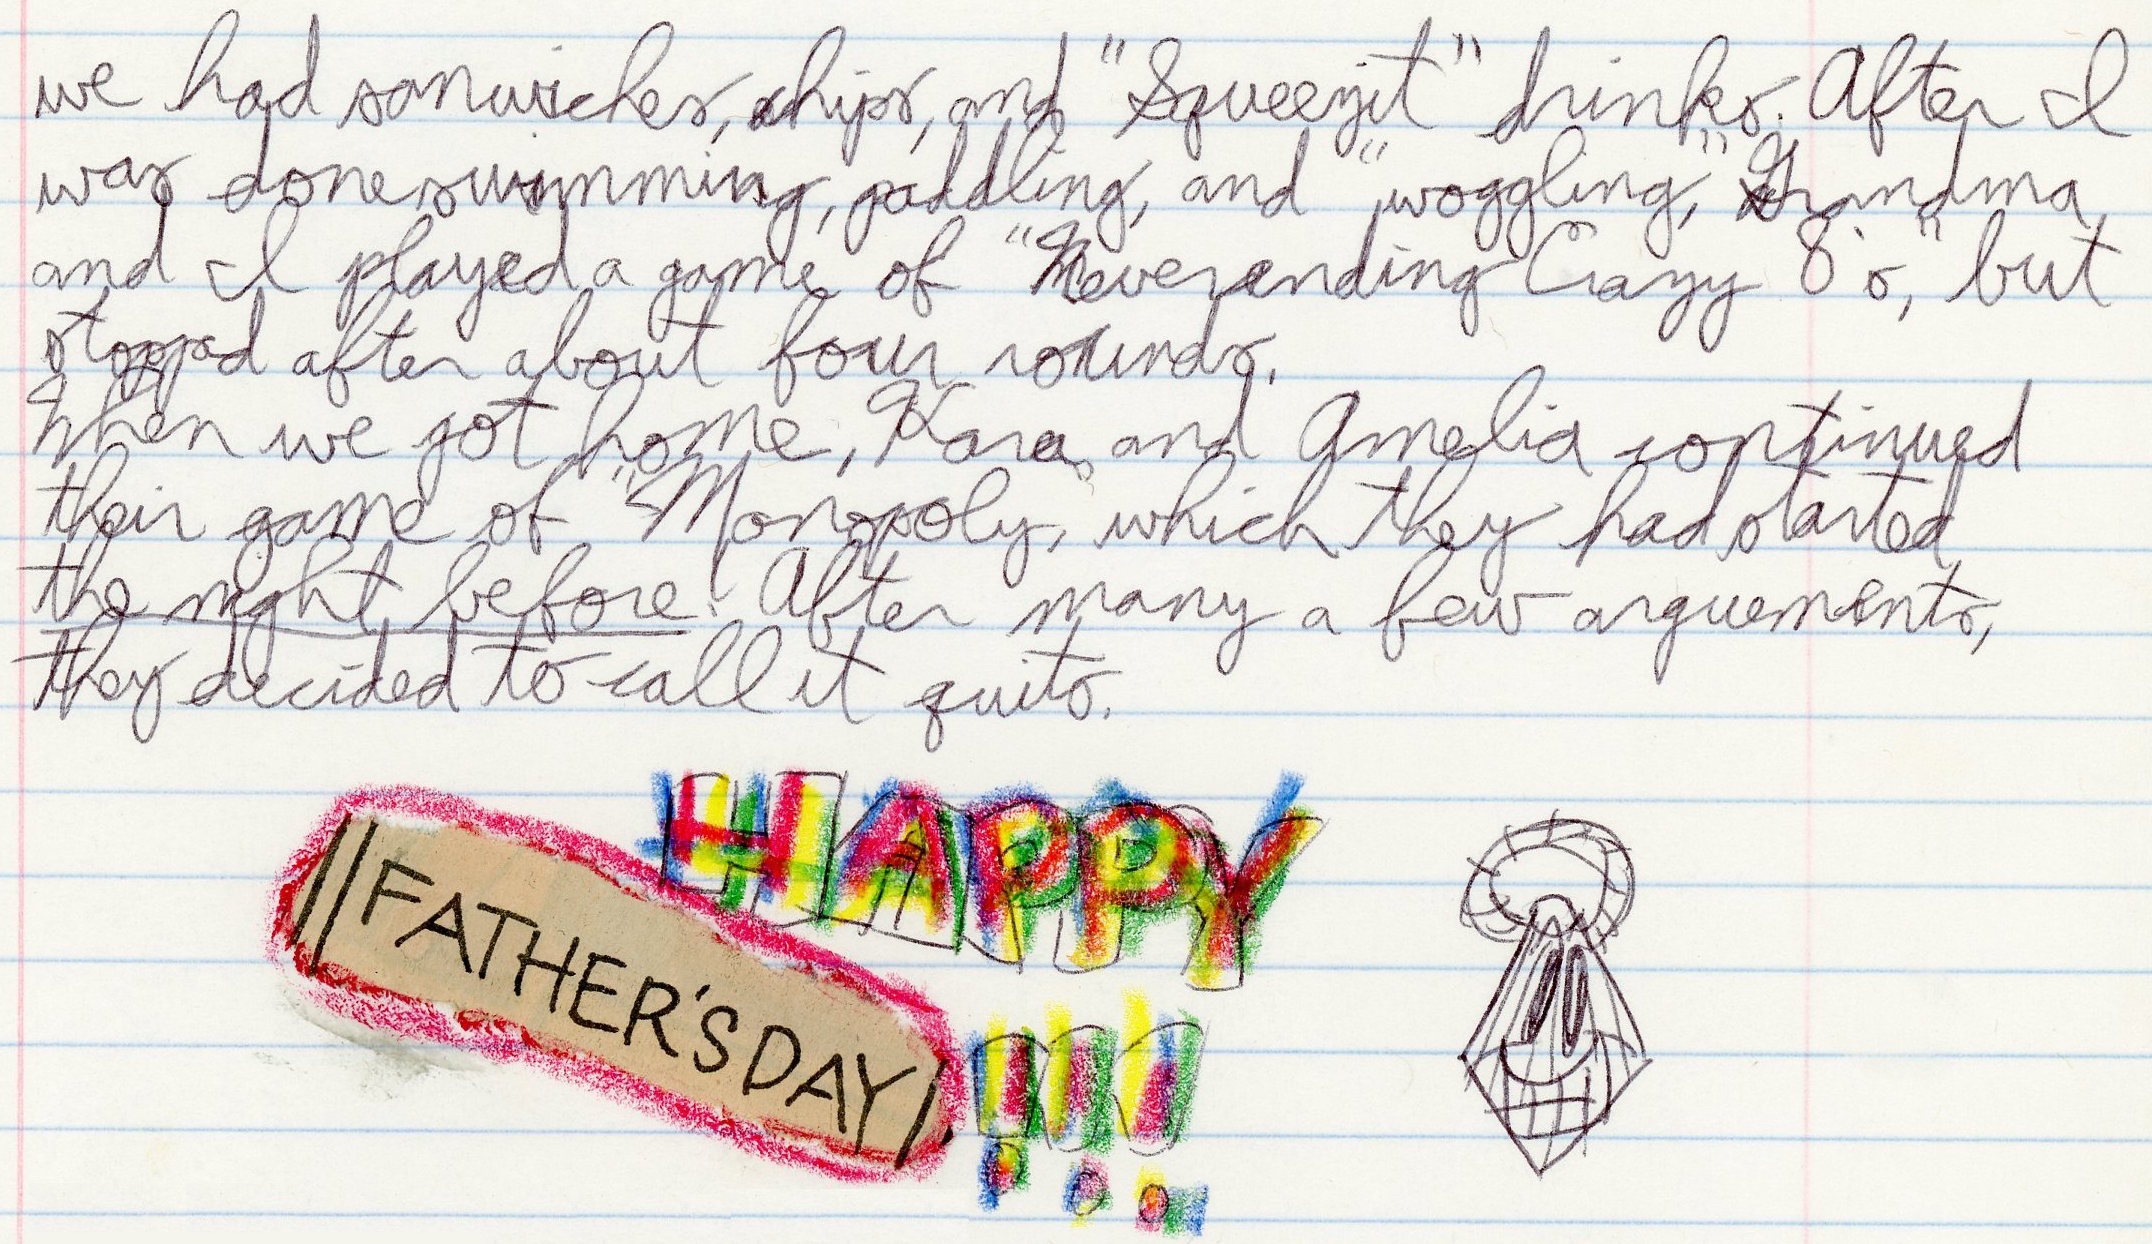 we had sanwiches, chips, and "Squeezit" drinks. After I
was done swimming, paddling, and "woggling," Grandma
and I played a game of "Neverending Crazy 8's," but
stopped after about four rounds.
When we got home, Kara and Amelia continued
their game of "Monopoly," which they had started
the night before. After many a few arguements,
they decided to call it quits.
HAPPY
FATHER'S DAY
!!!